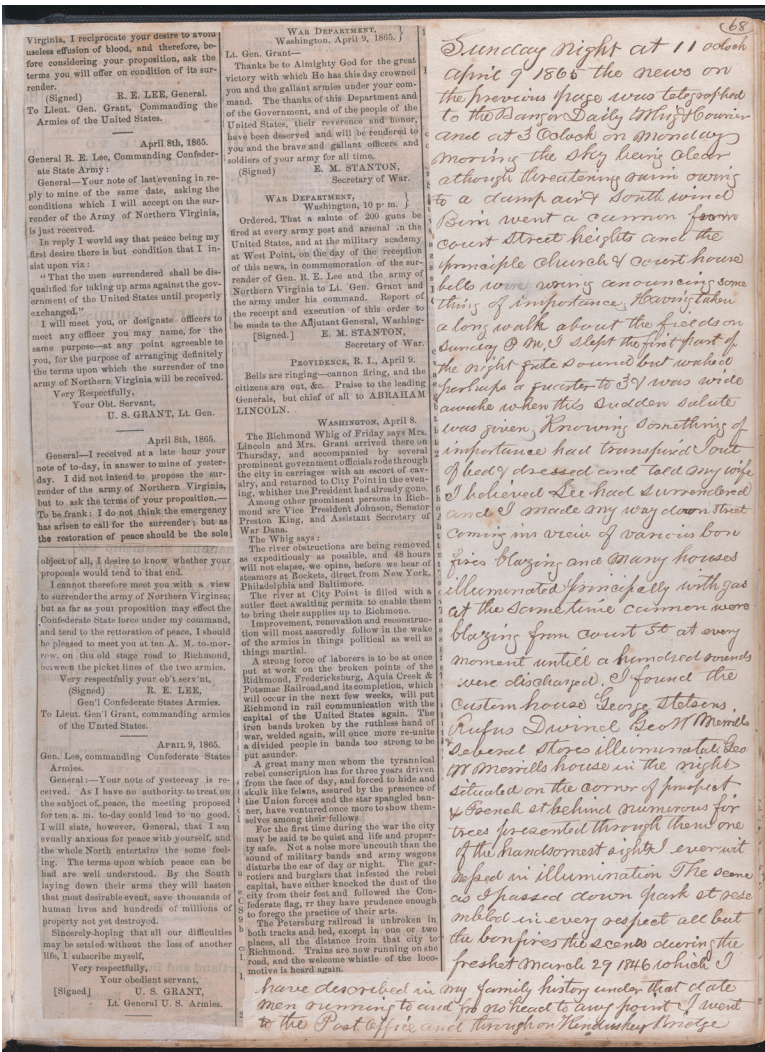 Virginia, I reciprocate your desire to avoid
useless effusion of blood, and therefore, be-
fore considering your proposition, ask the
terms you will offer on condition of its sur-
render.
(Signed) R. E. LEE, General.
To Lieut. Gen. Grant, Commanding the
Armies of the United States.
April 8th, 1865.
General R. E. Lee, Commanding Confeder-
ate State Army :
General—Your note of last evening in re-
ply to mine of the same date, asking the
conditions which I will accept on the sur-
render of the Army of Northern Virginia,
is just received.
In reply I would say that peace being my
first desire there is but condition that I in-
sist upon viz :
"That the men surrendered shall be dis-
qualified for taking up arms against the gov-
ernment of the United States until properly
exchanged."
I will meet you, or designate officers to
meet any officer you may name, for the
same purpose—at any point agreeable to
you, for the purpose of arranging definitely
the terms upon which the surrender of tno
army of Northern Virginia will be received.
Very Respectfully,
Your Obt. Servant,
U. S. GRANT, Lt. Gen.
April 8th, 1865.
General—I received at a late hour your
note of to-day, in answer to mine of yester-
day. I did not intend to propose the sur-
render of the army of Northern Virginia,
but to ask the terms of your proposition.—
To be frank: I do not think the emergency
has arisen to call for the surrender; but as
the restoration of peace should be the sole
object of all, I desire to know whether your
proposals would tend to that end.
I cannot therefore meet you with a view
to surrender the army of Northern Virginsa;
but as far as your proposition may effect the
Confederate State force under my command,
and tend to the rettoration of peace, I should
be pleased to meet you at ten A. M. to-mor-
row, on thu old stage road to Richmond,
between the picket lines of the two armies.
Very respectfnlly your ob't serv'nt,
(Signed) R. E. LEE,
Gen'l Confederate States Armies.
To Lieut. Gen'l Grant, commanding armies
of the United States.
APRIL 9, 1865.
Gen. Lee, commanding Confederate States
Armies.
General:—Your note of yestereay is re-
ceived. As I have no authority to treat on
the subject of peace, the meeting proposed
for ten a. m. to-day could lead to no good.
I will slate, however, General, that I am
evually anxious for peace with yourself, and
the whole North entertains the same feel-
ing. The terms upon which peace can be
had are well understood. By the South
laying down their arms they will hasten
that most desirable event, save thousands of
human lives and hundreds of millions of
property not yet destroyed.
Sincerely hoping that all our difficulties
may be settled without the loss of another
life, I subscribe myself,
Very respectfully,
Your obedient servant,
[Signed] U. S. GRANT,
Lt. General U. S. Armies.
WAR DEPARTMENT,
Washington, April 9, 1865. }
Lt. Gen. Grant—
Thanks be to Almighty God for the great
victory with which He has this day crowned
you and the gallant armies under your com-
mand. The thanks of this Department and
of the Government, and of the people of the
United States, their reverence and honor,
have been deserved and will be rendered to
you and the brave and gallant officers and
soldiers of your army for all time.
(Signed) E. M. STANTON,
Secretary of War.
WAR DEPARTMENT,
Washington, 10 p. m. }
Ordered, That a salute of 200 guns be
fired at every army post and arsenal in the
United States, and at the military academy
at West Point, on the day of the reception
of this news, in commemoration of the sur-
render of Gen. R. E. Lee and the army of
Northern Virginia to Lt. Gen. Grant and
the army under his command. Report of
the receipt and execution of this order to
be made to the Adjutant General, Washing-
[Signed.] E. M. STANTON,
Secretary of War.
PROVIDENCE, R. I., April 9.
Bells are ringing—cannon firing, and the
citizens are out, &c. Praise to the leading
Generals, but chief of all to ABRAHAM
LINCOLN.
WASHINGTON, April 8.
The Richmond Whig of Friday says Mrs.
Lincoln and Mrs. Grant arrived there on
Thursday, and accompanied by several
prominent government officials rode through
the city in carriages with an escort of cav-
alry, and returned to City Point in the even-
ing, whither tne President had already gone.
Among other prominent persons in Rich-
mond are Vice President Johnson, Senator
Preston King, and Assistant Secretary of
War Dana.
The Whig says :
The river obstructions are being removed
as expeditiously as possible, and 48 hours
will not elapse, we opine, before we hear of
steamers at Rockets, direct from New York,
Philadelphia and Baltimore.
The river at City Point is filled with a
sutler fleet awaiting permits to enable them
to bring their supplies up to Richmond.
Improvement, renovation and reconstruc-
tion will most assuredly follow in the wake
of the armies in things political as well as
things martial.
A strong force of laborers is to be at once
put at work on the broken points of the
Ridhmond, Fredericksburg, Aquia Creek &
Potomac Railroad, and its completion, which
will occur in the next few weeks, will put
Richmond in rail communication with the
capital of the United States again. The
iron bands broken by the ruthless hand of
war, welded again, will once more re-unite
a divided people in bands too strong to be
put asunder.
A great many men whom the tyrannical
rebel conscription has for three years driven
from the face of day, and forced to hide and
skulk like felons, assured by the presence of
the Union forces and the star spangled ban-
ner, have ventured once more to show them-
selves among their fellows.
For the first time during the war the city
may be said to be quiet and life and proper-
ty safe. Not a noise more uncouth than the
sound of military bands and army wagons
disturbs the ear of day or night. The gar-
roters and burglars that infested the rebel
capital, have either knocked the dust of the
city from their feet and followed the Con-
federate flag, or they have prudence enough
to forego the practice of their arts.
The Petersburg railroad is unbroken in
both tracks and bed, except in one or two
places, all the distance from that city to
Richmond. Trains are now running on she
road, and the welcome whistle of the loco-
motive is heard again.
68
Sunday night at 11 oclock
april 9 1865 the news on
the previous page was telegraphed
to the Bangor Daily Whig & Courier
and at 3 Oclock on Monday
morning the sky being clear
although threatening rain owing
to a damp air & south wind
Bim went a cannon from
court street heights and the
principle church & court house
bells were wrung anouncing some
thing of importance, Having taken
a long walk about the fields on
Sunday P M, I slept the first part of
the night quite sound but waked
perhaps a quarter to 3 & was wide
awake when this sudden salute
was given, Knowing something of
importance had transpired I out
of bed & dressed and told my wife
I believed Lee had surrendered
and I made my way down street
coming in view of various bon
fires blazing and many houses
illuminated principally with gas
at the same time cannon were
blazing from court St at every
moment untill a hundred rounds
were discharged, I found the
custom house George Stetsons,
Rufus Dwinel Geo W Merrills
several stores illuminated, Geo
W Merrills house in the night
situated on the corner of prospect
& French st behind numerous fir
trees presented through them one
of the handsomest sights I ever wit
nessed in illumination The scene
as I passed down park st rese
mbled in every respect all but
the bonfires the scenes during the
freshet March 29 1846 which I
have described in my family history under that date
men running to and fro no head to any point I went
to the Post Office and through on Kenduskeag Bridge